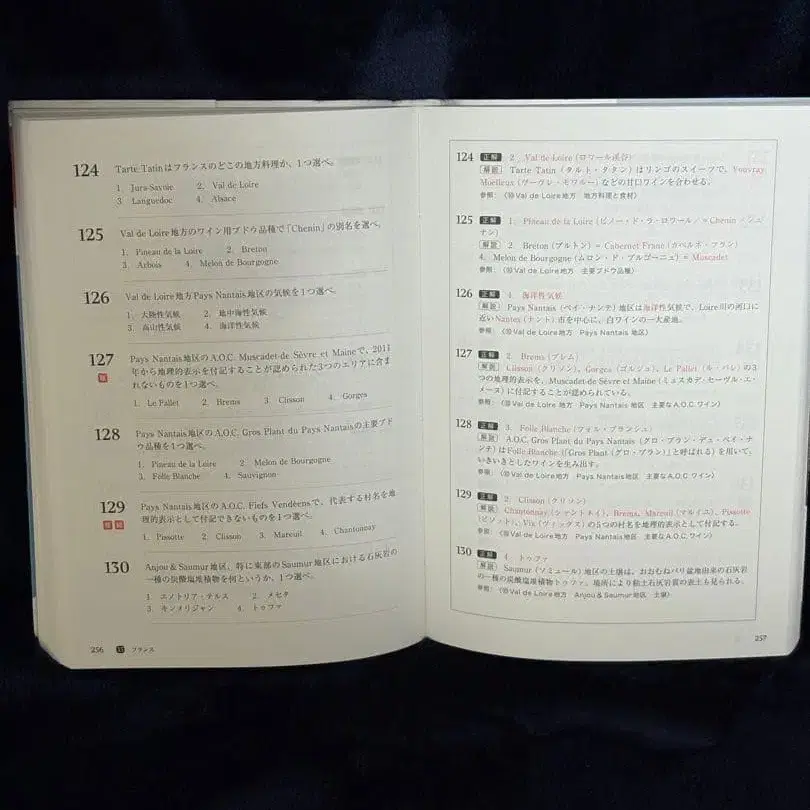 124 Tarte Tatinはフランスのどこの地方料理か、1つ選べ。
1. Jura-Savoie 2. Val de Loire
3. Languedoc 4. Alsace
125 Val de Loire地方のワイン用ブドウ品種で「Chenin」の別名を選べ。
1. Pineau de la Loire 2. Breton
3. Arbois 4. Melon de Bourgogne
126 Val de Loire地方Pays Nantais地区の気候を1つ選べ。
1. 大陸性気候 2. 地中海性気候
3. 高山性気候 4. 海洋性気候
127 Pays Nantais地区のA.O.C. Muscadet de Sèvre et Maineで、2011
年から地理的表示を付記することが認められた3つのエリアに含ま
れないものを1つ選べ。
1. Le Pallet 2. Brems 3. Clisson 4. Gorges
128 Pays Nantais地区のA.O.C. Gros Plant du Pays Nantaisの主要ブド
ウ品種を1つ選べ。
1. Pineau de la Loire 2. Melon de Bourgogne
3. Folle Blanche 4. Sauvignon
129 Pays Nantais地区のA.O.C. Fiefs Vendéensで、代表する村名を地
理的表示として付記できないものを1つ選べ。
1. Pissotte 2. Clisson 3. Mareuil 4. Chantonnay
130 Anjou & Saumur地区、特に東部のSaumur地区における石灰岩の
一種の炭酸塩堆積物を何というか、1つ選べ。
1. エノトリア・テルス 2. メセタ
3. キンメリジャン 4. トゥファ
256 フランス
124 正解 2. Val de Loire（ロワール渓谷）
解説 Tarte Tatin（タルト・タタン）はリンゴのスイーツで、Vouvray
Moelleux（ヴーヴレ・モワルー）などの甘口ワインを合わせる。
参照：〈⑩Val de Loire地方 地方料理と食材〉
125 正解 1. Pineau de la Loire（ピノー・ド・ラ・ロワール）＝Chenin（シュ
ナン）
解説 2. Breton（ブルトン）＝Cabernet Franc（カベルネ・フラン）
4. Melon de Bourgogne（ムロン・ド・ブルゴーニュ）＝Muscadet
参照：〈⑩Val de Loire地方 主要ブドウ品種〉
126 正解 4. 海洋性気候
解説 Pays Nantais（ペイ・ナンテ）地区は海洋性気候で、Loire川の河口に
近いNantes（ナント）市を中心に、白ワインの一大産地。
参照：〈⑩Val de Loire地方 Pays Nantais地区〉
127 正解 2. Brems（ブレム）
解説 Clisson（クリソン）、Gorges（ゴルジュ）、Le Pallet（ル・パレ）の3
つの地理的表示を、Muscadet de Sèvre et Maine（ミュスカデ・セーヴル・エ・
メーヌ）に付記することが認められている。
参照：〈⑩Val de Loire地方 Pays Nantais地区 主要なA.O.C.ワイン〉
128 正解 3. Folle Blanche（フォル・ブランシュ）
解説 A.O.C. Gros Plant du Pays Nantais（グロ・プラン・デュ・ペイ・ナ
ンテ）はFolle Blanche（「Gros Plant（グロ・プラン）」と呼ばれる）を用いて、
いきいきとしたワインを生み出す。
参照：〈⑩Val de Loire地方 Pays Nantais地区 主要なA.O.C.ワイン〉
129 正解 2. Clisson（クリソン）
解説 Chantonnay（シャントネイ）、Brems、Mareuil（マルイユ）、Pissotte
（ピソット）、Vix（ヴィックス）の5つの村名を地理的表示として付記する。
参照：〈⑩Val de Loire地方 Pays Nantais地区 主要なA.O.C.ワイン〉
130 正解 4. トゥファ
解説 Saumur（ソミュール）地区の土壌は、おおむねパリ盆地由来の石灰岩
の一種の炭酸塩堆積物トゥファ。場所により粘土石灰岩質の表土も見られる。
参照：〈⑩Val de Loire地方 Anjou & Saumur地区 土壌〉
257